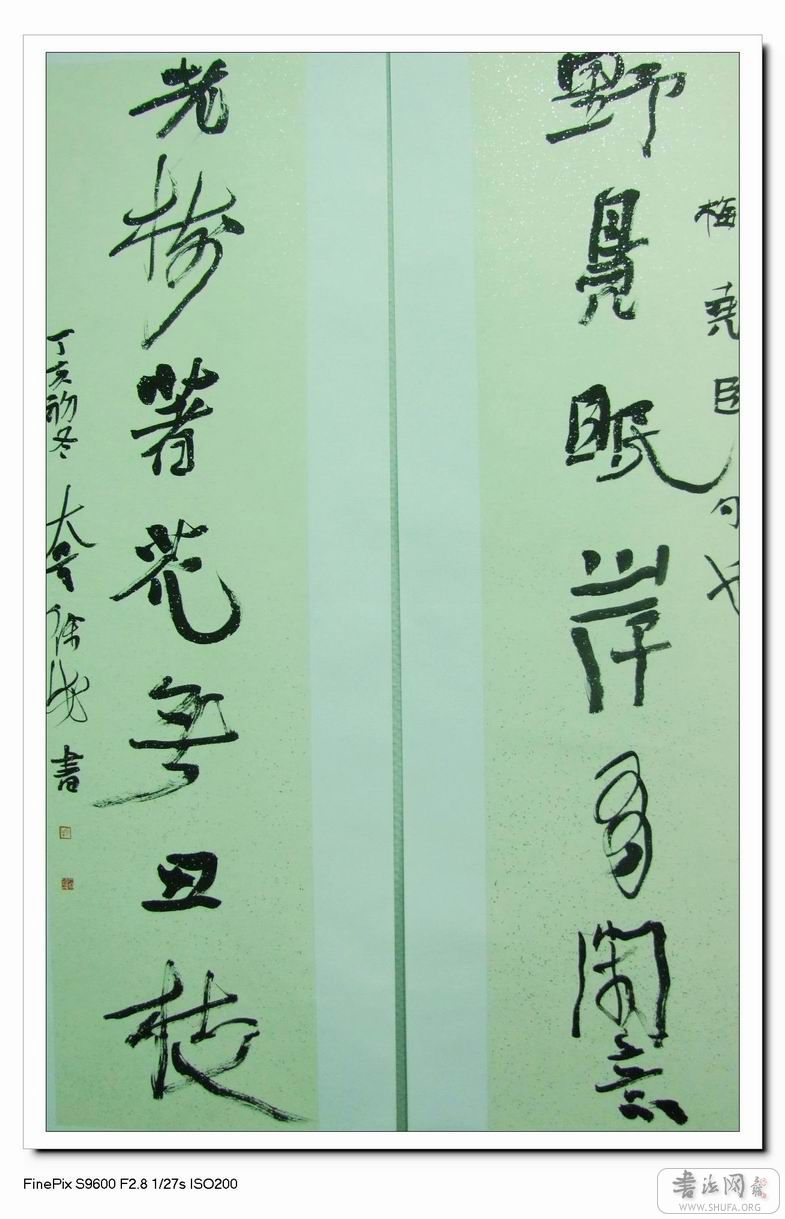 梅堯臣句也
野鳧眠岸有閑意
老樹著花無丑枝
丁亥初冬 徐 書
FinePix S9600 F2.8 1/27s ISO200
書法网
WWW.SHUFA.ORG